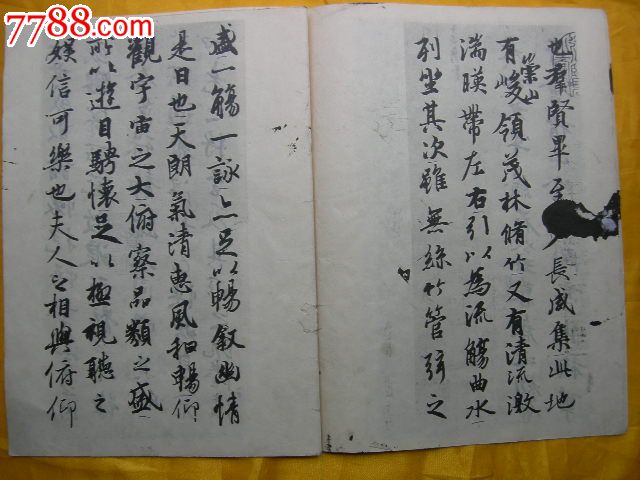 7788.com
也羣賢畢至長咸集此地
有崇山峻領茂林脩竹又有清流激
湍暎帶左右引以為流觴曲水
列坐其次雖無絲竹管弦之
盛一觴一詠亦足以暢敘幽情
是日也天朗氣清惠風和暢仰
觀宇宙之大俯察品類之盛
所以遊目騁懷足以極視聽之
娛信可樂也夫人之相與俯仰